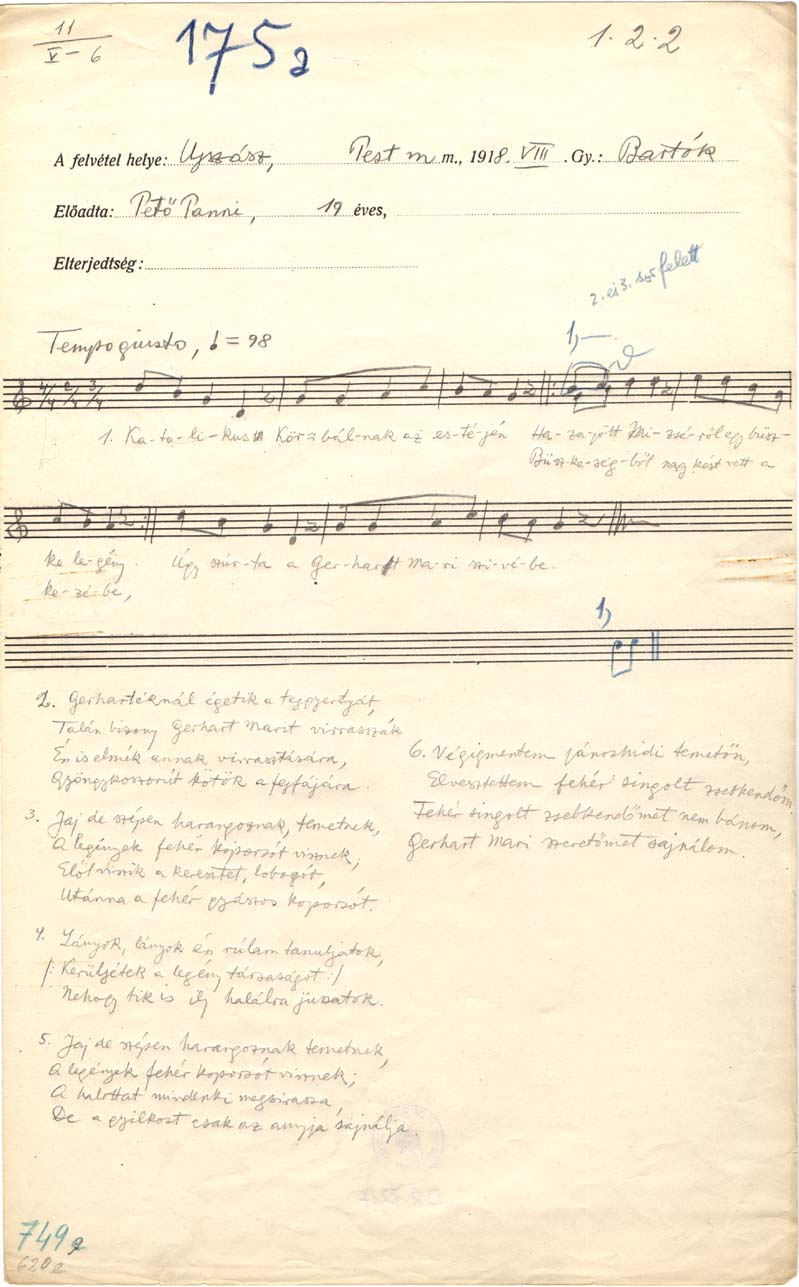 11
V–6
175a
1.2.2
A felvétel helye: Ujszász, Pest m m., 1918. VIII. Gy.: Bartók
Előadta: Pető Panni, 19 éves,
Elterjedtség:
2. és 3. felett
1,—
Tempo giusto, = 98
4/4 2/4 3/4
1. Ka-to-li-kus Kör-bál-nak az es-té-jén Ha-za-jött Mi-zsé-ről egy büsz-
Büsz-ke-ség-ből nagy kést vett a
ke le-gény. Úgy szúr-ta a Ger-hart Ma-ri szi-vé-be.
ke-zé-be,
1,
2. Gerhartéknál égetik a
Talán bizony Gerhart Marit virrasszák
Én is elmék annak virrasztására,
Gyöngykoszorút kötök a fejfájára.
3. Jaj de szépen harangoznak, temetnek,
A legények fehér koporsót visznek;
Elől viszik a keresztet, lobogót,
Utánna a fehér gyászos koporsót.
4. Lányok, lányok én rúlam tanuljatok,
/: Kerüljétek a legény társaságot :/
Nehogy tik is ily halálra jussatok.
5. Jaj de szépen harangoznak temetnek,
A legények fehér koporsót visznek;
A halottat mindenki megsirassa
De a gyilkost csak az annyja sajnálja.
6. Végigmentem jánoshidi temetőn,
Elvesztettem fehér singolt zsebkendőm
Fehér singolt zsebkendőmet nem bánom,
Gerhart Mari szeretőmet sajnálom.
749a
620a